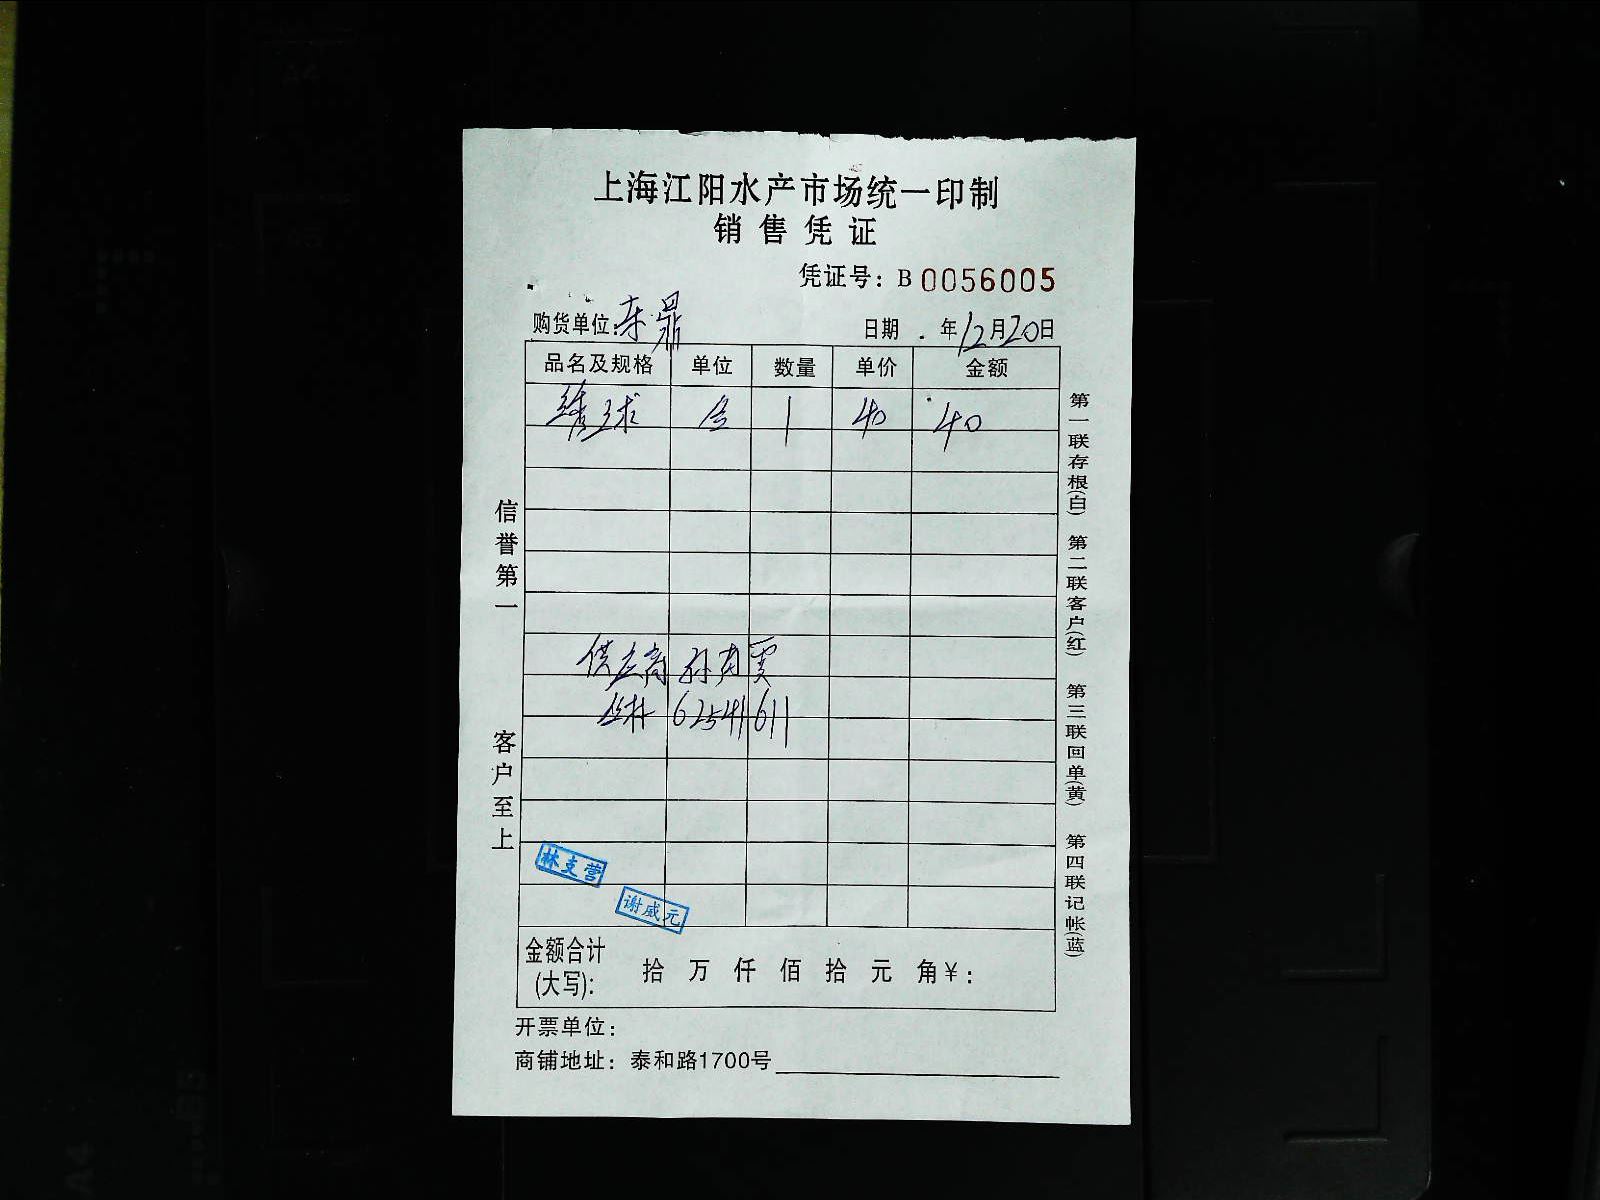 上海江阳水产市场统一印制
销售凭证
凭证号：B 0056005
购货单位：东鼎 日期 年12月20日
品名及规格 单位 数量 单价 金额
绣球 1 40 40
供应商 孙
丝林 62541611
林支营
谢威元
金额合计
(大写)： 拾 万 仟 佰 拾 元 角 ¥：
开票单位：
商铺地址：泰和路1700号
信誉第一
客户至上
第一联存根(白) 第二联客户(红) 第三联回单(黄) 第四联记帐(蓝)